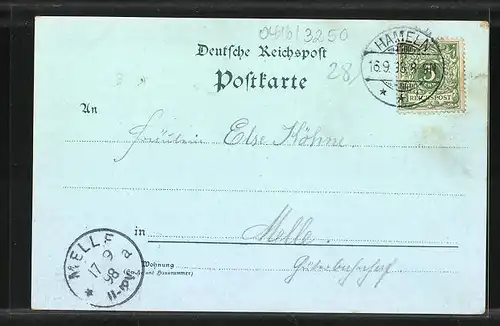 0416/3250
Deutsche Reichspost
Postkarte
28/
HAMELN
16.9.98.8
REICHSPOST
An
Fräulein Else Höhne
in Melle
Wohnung
(Straße und Hausnummer)
Güterbahnhof
MELLE
17 9
98
a